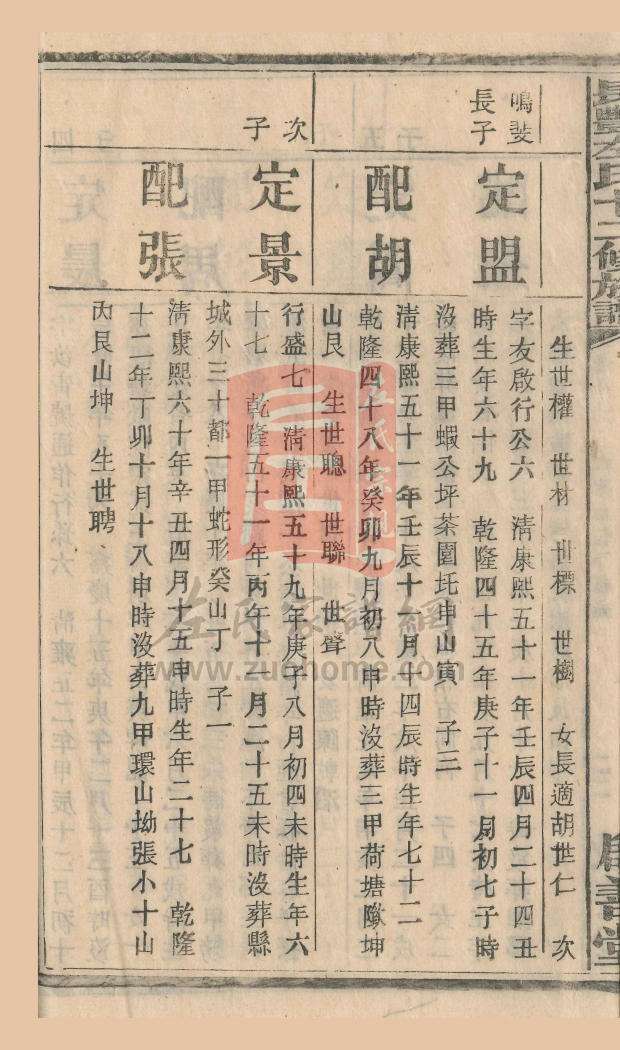 生世權 世材 世標 世樹 女長適胡世仁 次
鳴斐
長子
定盟
字友啟行公六 清康熙五十一年壬辰四月二十四丑
時生年六十九 乾隆四十五年庚子十一月初七子時
沒葬三甲蝦公坪茶園圫申山寅 子三
配胡
清康熙五十一年壬辰十一月十四辰時生年七十二
乾隆四十八年癸卯九月初八申時沒葬三甲荷塘隞坤
山艮 生世聰 世聯 世聲
次
子
定景
行盛七 清康熙五十九年庚子八月初四未時生年六
十七 乾隆五十一年丙午十一月二十五未時沒葬縣
城外三十都一甲蛇形癸山丁 子一
配張
清康熙六十年辛丑四月十五申時生年二十七 乾隆
十二年丁卯十月十八申時沒葬九甲環山坳張小十山
內艮山坤 生世聘
左氏家譜網
www.zuohome.com